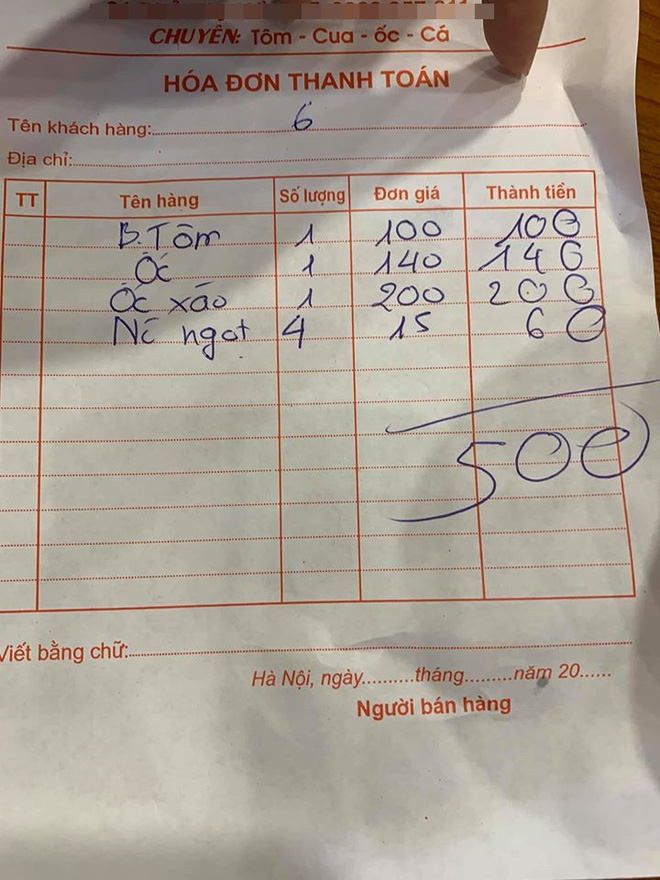 CHUYÊN: Tôm - Cua - ốc - Cá
HÓA ĐƠN THANH TOÁN
Tên khách hàng: 6
Địa chỉ:
TT Tên hàng Số lượng Đơn giá Thành tiền
B.Tôm 1 100 100
Ốc 1 140 140
Ốc xào 1 200 200
Nc ngọt 4 15 60
500
Viết bằng chữ:
Hà Nội, ngày.........tháng.........năm 20......
Người bán hàng